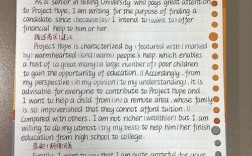 As a senior in Nanjing University who pays great attention
to Project Hope. I am writing for the purpose of finding a
candidate since (because/as) I intend to (want to) offer
financial help to him or her.
Project Hope is characterized by (featured with) (marked
by) warmhearted (kind) people's help which enables
a host of (a great many/a large number of) poor children
to gain the opportunity of education. Accordingly, from
my perspective (in my opinion) (to my understanding), it is
advisable for everyone to contribute to Project Hope and
I want to help a child from in a remote area, whose family
is so impoverished that they cannot afford tuition. If
Compared with others. I am not richer (wealthier) but I am
willing to do my utmost (try my best) to help him/her finish
education from high school to college.
Finally, I want to say that I am quite grateful for your